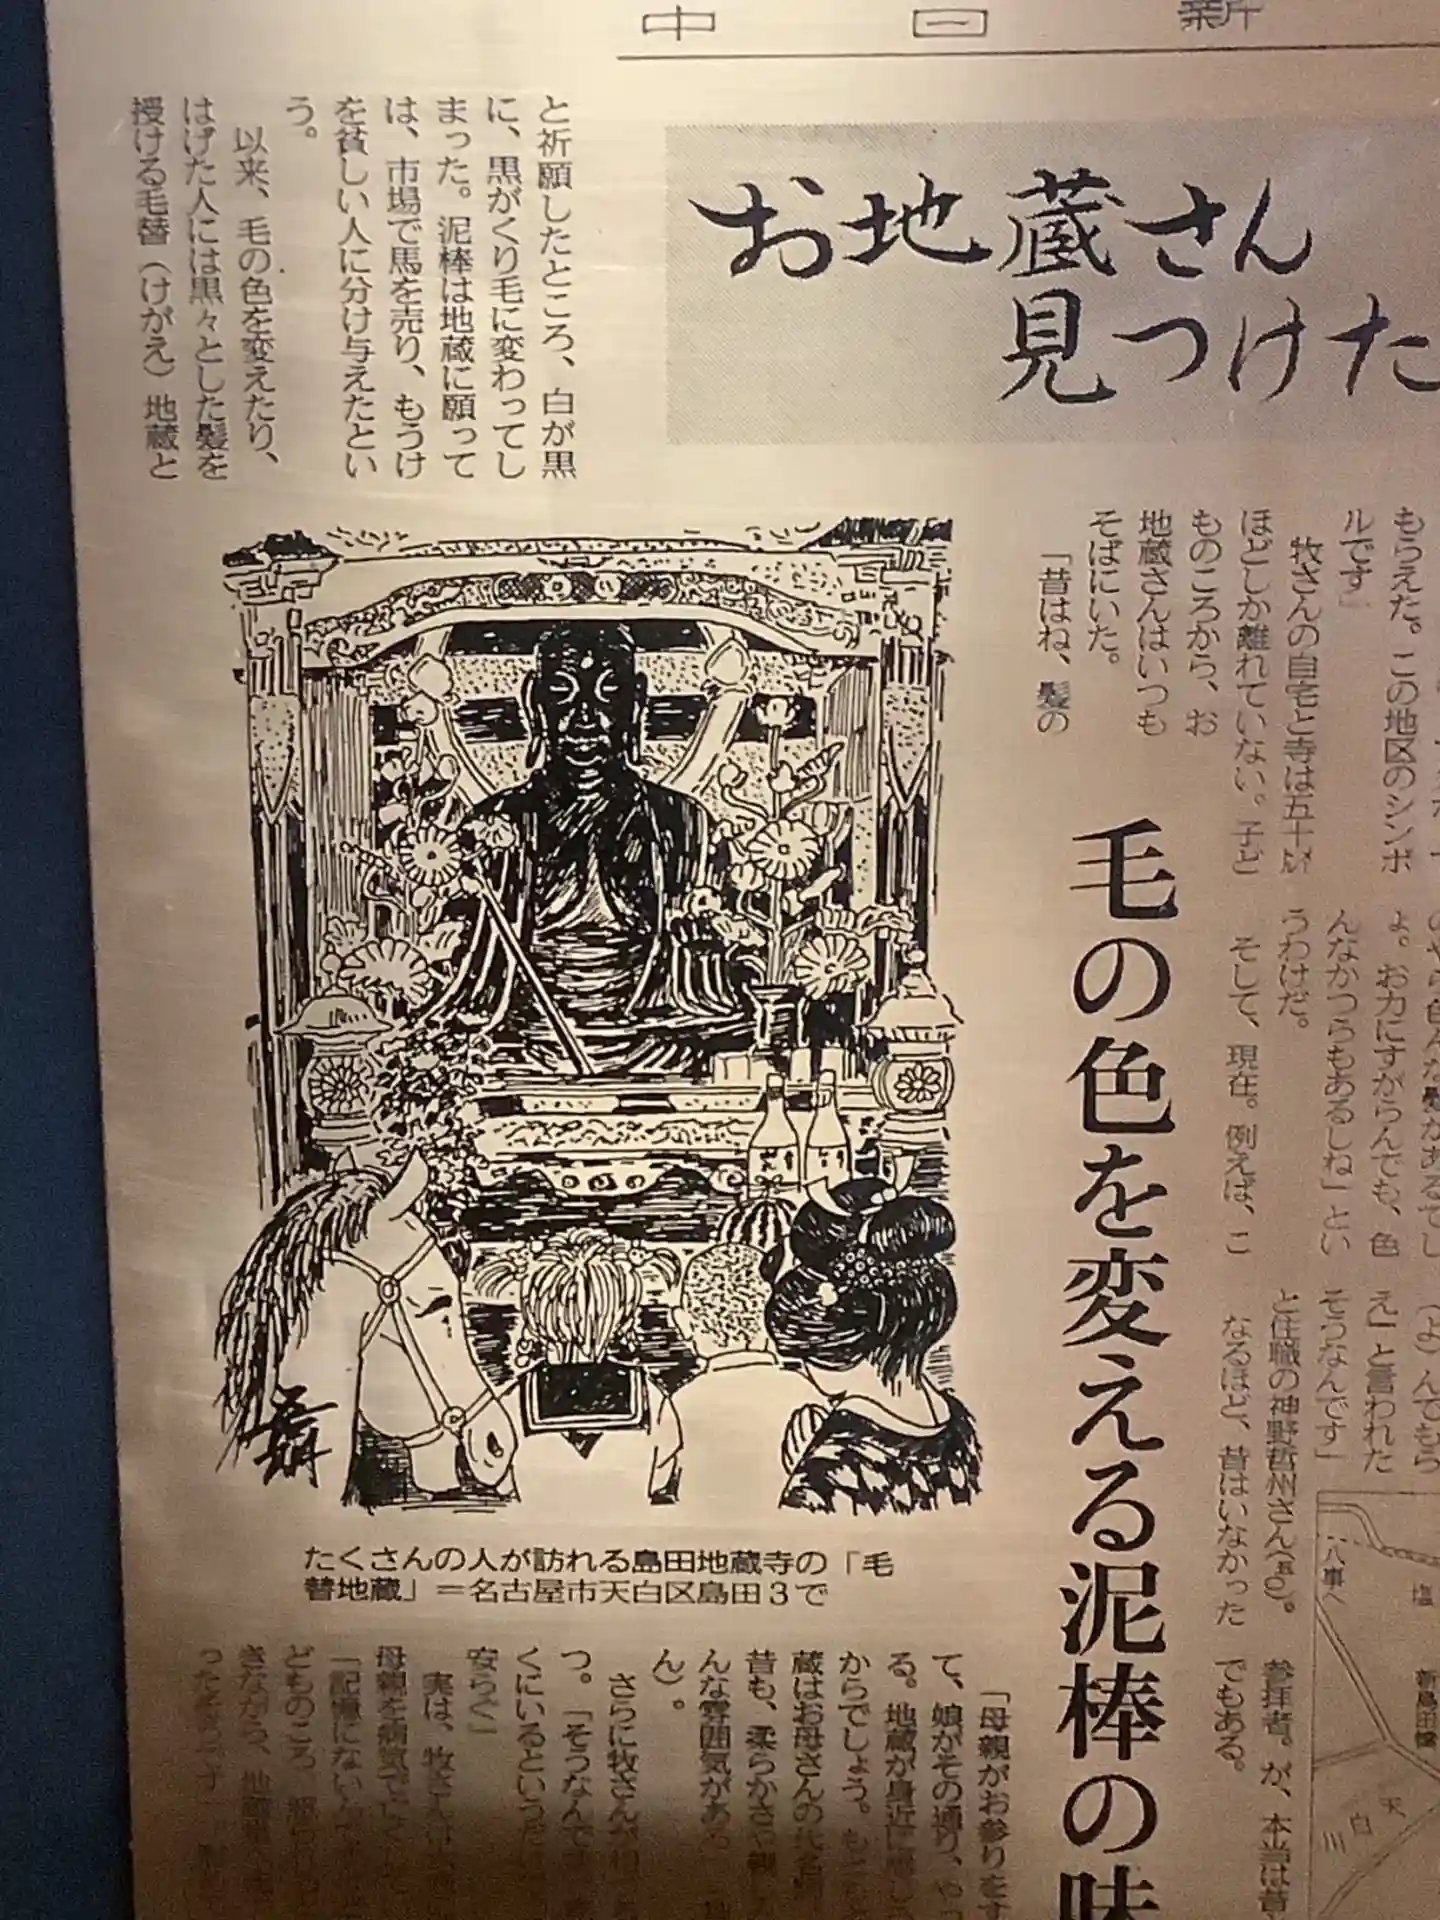 中日新
お地蔵さん
見つけた
もらえた。この地区のシンボ
ルです」
牧さんの自宅と寺は五十㍍
ほどしか離れていない。子ど
ものころから、お
地蔵さんはいつも
そばにいた。
「昔はね、髪の
んなかつらもあるしね」とい
うわけだ。
そして、現在。例えば、こ
え」と言われた
そうなんです」
と住職の神野哲州さん
なるほど、昔はいなかった
参拝者。が、本当は昔
でもある。
毛の色を変える泥棒の味
と祈願したところ、白が黒
に、黒がくり毛に変わってし
まった。泥棒は地蔵に願って
は、市場で馬を売り、もうけ
を貧しい人に分け与えたとい
う。
以来、毛の色を変えたり、
はげた人には黒々とした髪を
授ける毛替(けがえ)地蔵と
たくさんの人が訪れる島田地蔵寺の「毛
替地蔵」=名古屋市天白区島田3で
「母親がお参りをす
て、娘がその通り、や
る。地蔵が身近に感じ
からでしょう。
蔵はお母さんの代名詞
昔も、柔らかさや親
んな雰囲気があ
ん)。
さらに牧さんが
つ。「そうなんで
くにいるというだ
安らぐ」
実は、牧さんは
母親を病気で亡くし
「記憶にないんで
どものころ
きながら、地蔵
八事へ
新島田橋
天
白
川